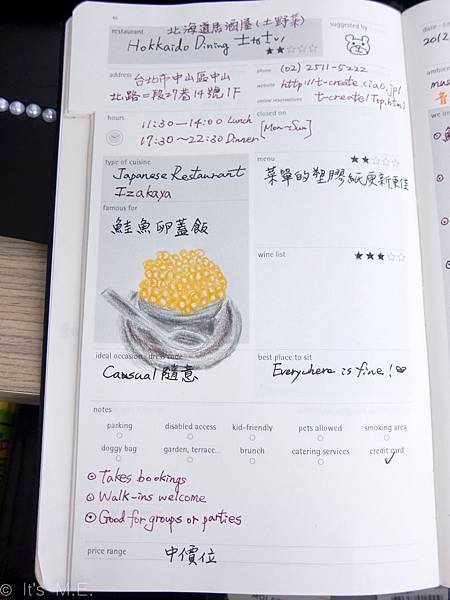 46
北海道居酒屋(土野菜)
restaurant
Hokkaido Dining
suggested by
address
台北市中山區中山
北路一段27巷14號1F
phone
(02) 2511-5222
website
http://t-create.ciao.jp/
online reservations
t-create/Top.html
hours
11:30—14:00 Lunch
17:30~22:30 Dinner
closed on
[Mon-Sun]
type of cuisine
Japanese Restaurant
Izakaya
menu
菜單的塑膠紙更新更佳
famous for
鮭魚卵蓋飯
wine list
ideal occasion / dress code
Camsual 隨意
best place to sit
Everywhere is fine!
notes
parking
disabled access
kid-friendly
pets allowed
smoking area
doggy bag
garden, terrace...
brunch
catering services
credit card
Takes bookings
Walk-ins welcome
Good for groups or parties
price range
中價位
2012
© It's M.E.